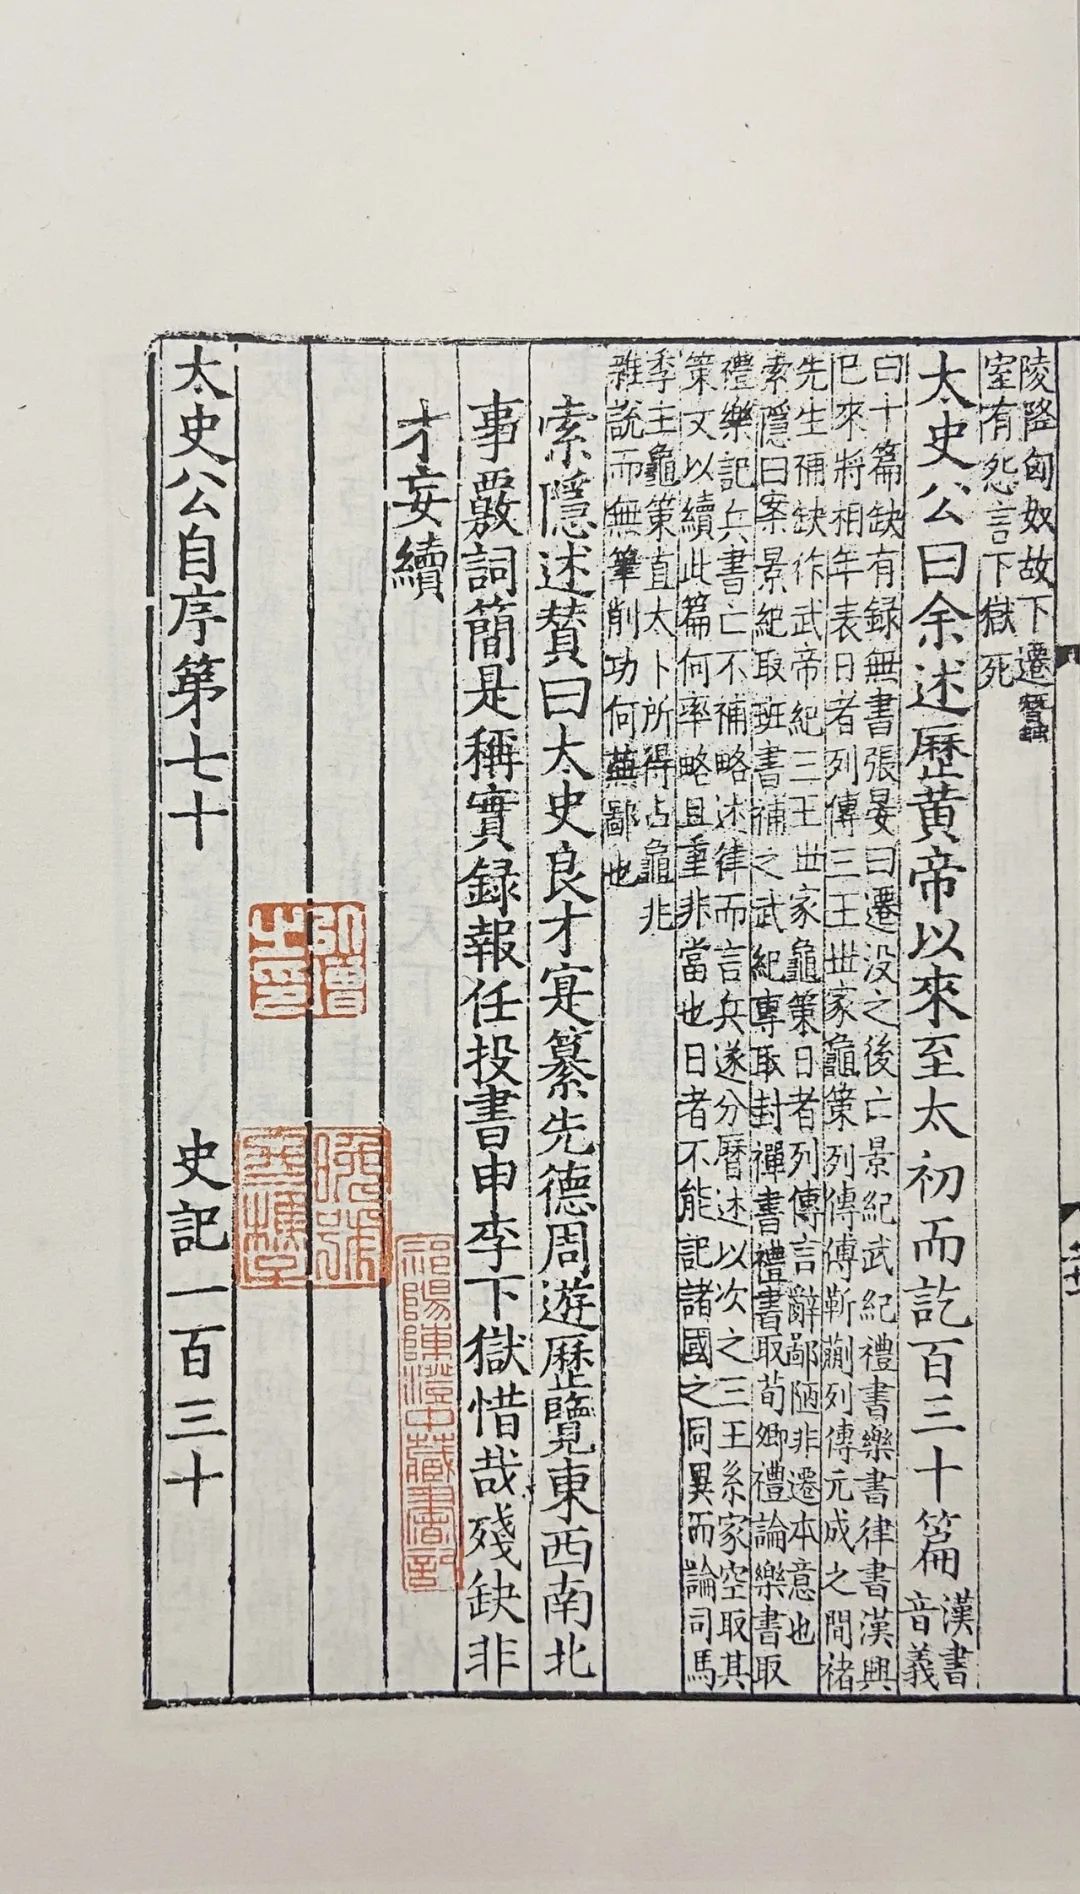 陵降匈奴故下遷蠶
室有怨言下獄死
太史公曰余述歷黃帝以來至太初而訖百三十篇 漢書
音義
曰十篇缺有録無書張晏曰遷没之後亡景紀武紀禮書樂書律書漢興
已來將相年表日者列傳三王世家龜策列傳傅靳蒯列傳元成之間褚
先生補缺作武帝紀三王世家龜策日者列傳言辭鄙陋非遷本意也
索隱曰案景紀取班書補之武紀專取封禪書禮書取荀卿禮論樂書取
禮樂記兵書亡不補略述律而言兵遂分曆述以次之三王系家空取其
策文以續此篇何率略且重非當也日者不能記諸國之同異而論司馬
季主龜策直太卜所得占龜兆
雜說而無筆削功何蕪鄙也
索隱述贊曰太史良才寔纂先德周遊歷覽東西南北
事覈詞簡是稱實録報任投書申李下獄惜哉殘缺非
才妄續
祁陽陳澄中藏書記
太史公自序第七十 史記一百三十